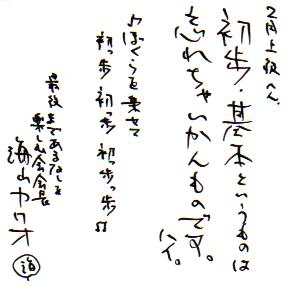 2月上級へん
初歩・基本というものは
忘れちゃいかんものです。
ハイ。
♪ぼくらを乗せて
初っ歩 初っ歩 初っ歩♫
最後まであるなしを
楽しむ会会長
海山カツオ
海